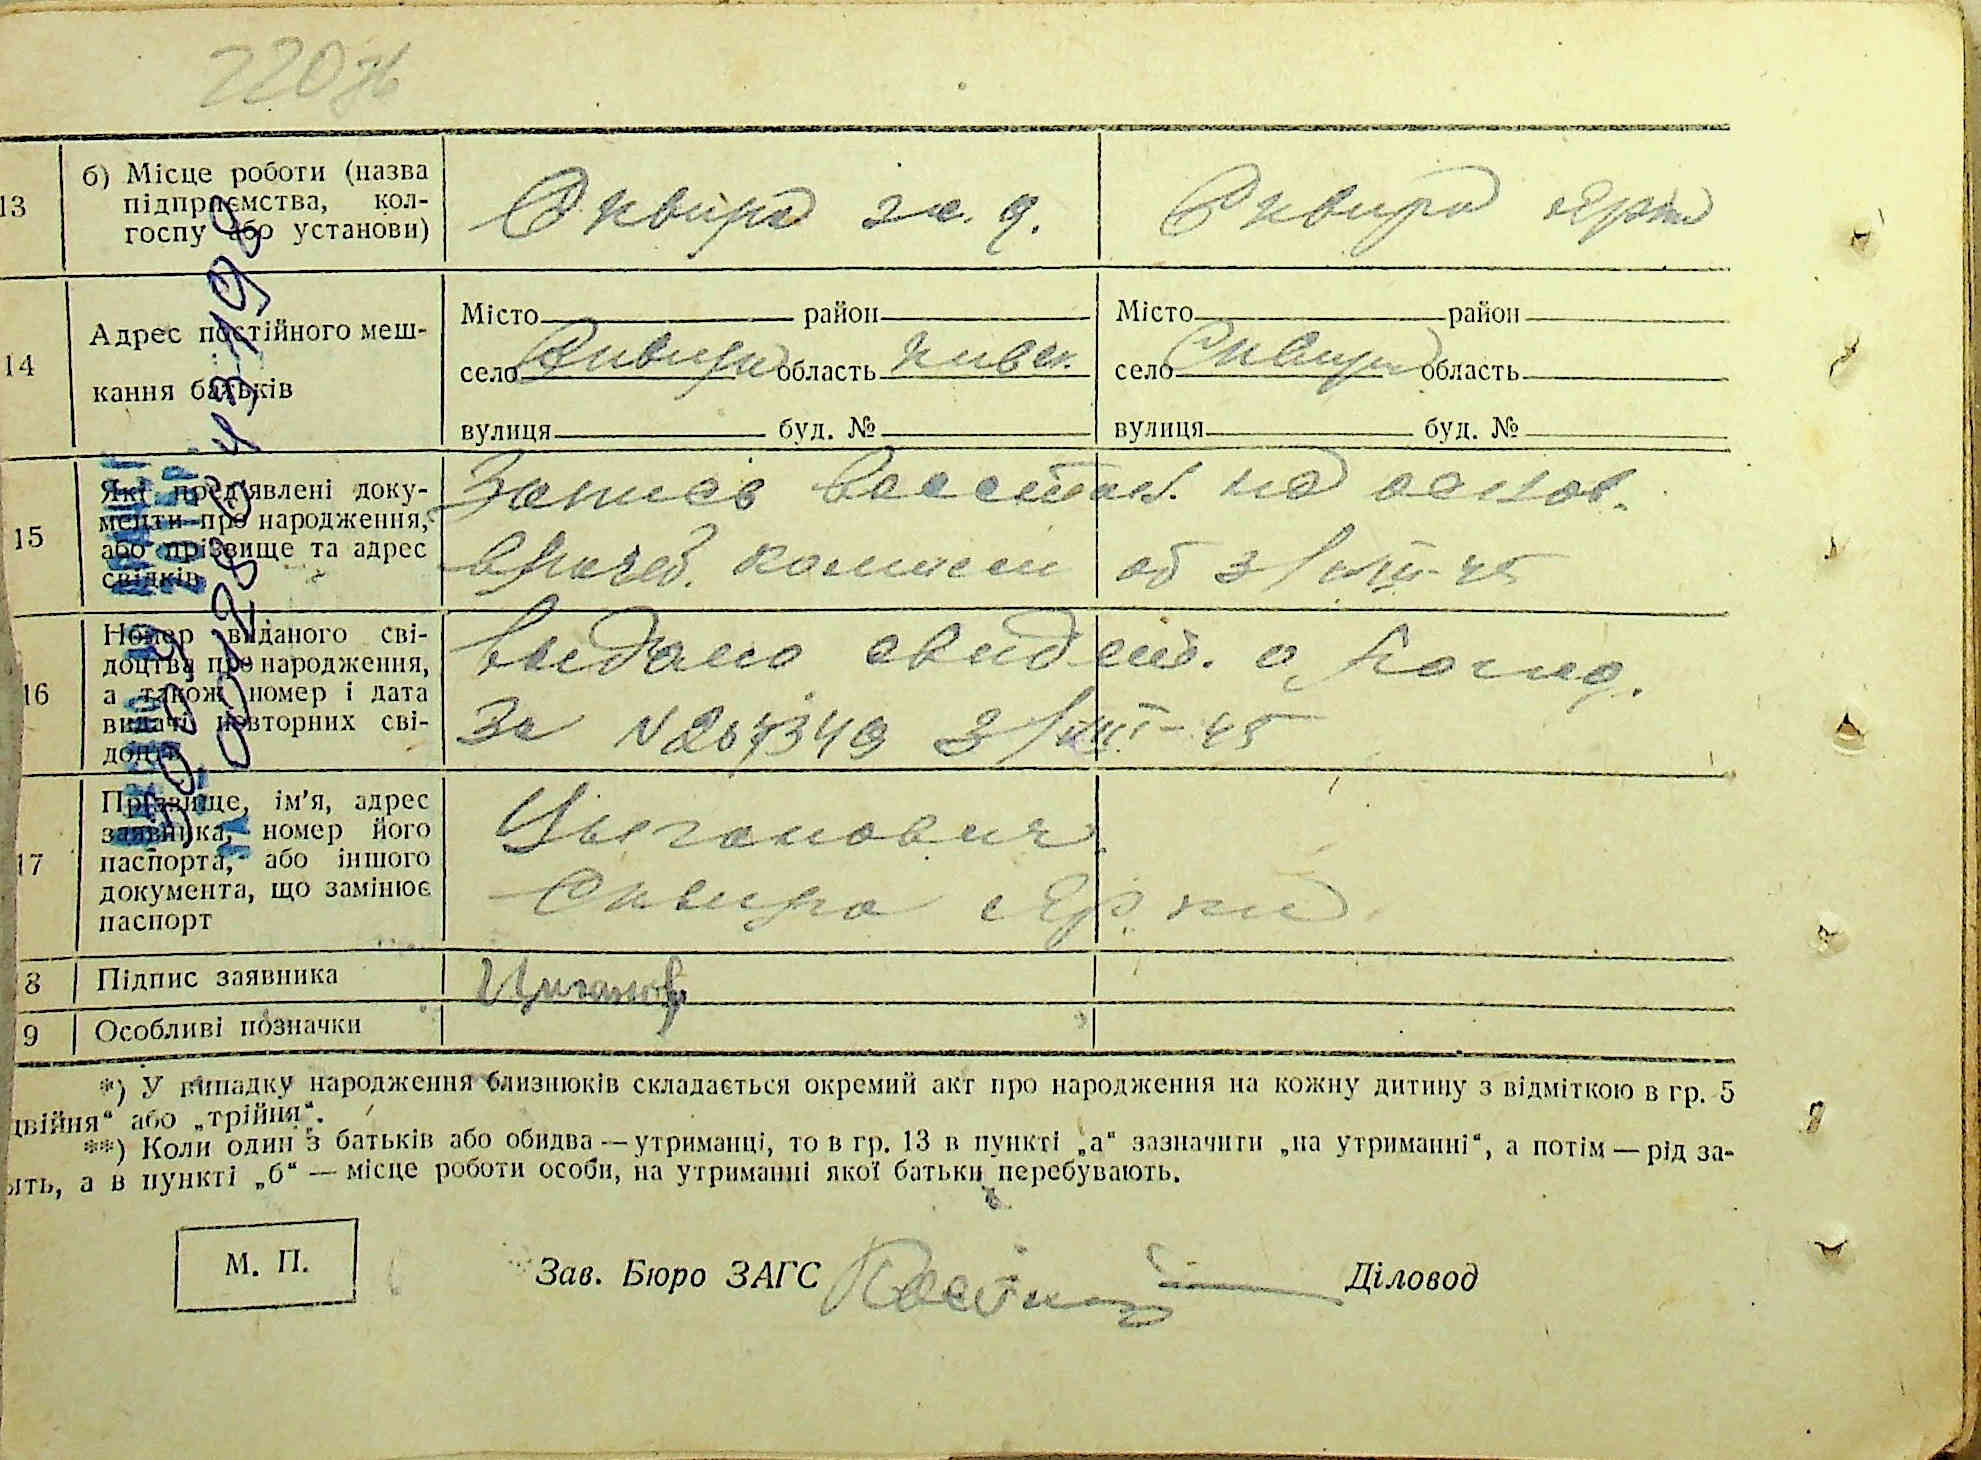 13
б) Місце роботи (назва
підприємства, кол-
госпу або установи)
Сквира ж. д.
Сквира
14
Адрес постійного меш-
кання батьків
Місто район
село Сквира область Киев.
вулиця буд. №
Місто район
село Сквира область
вулиця буд. №
15
Які пред'явлені доку-
менти про народження,
або прізвище та адрес
свідків
Запись восстан. на основ.
врачеб. комиссии об 3/VIII-45
16
Номер виданого сві-
доцтва про народження,
а також номер і дата
видачі повторних сві-
доцтв
Выдано свидет. о рожд.
За N 267349 3/VIII-45
17
Прізвище, ім'я, адрес
заявника, номер його
паспорта, або іншого
документа, що замінює
паспорт
Цыганович
Сквира
8 Підпис заявника
9 Особливі позначки
*) У випадку народження близнюків складається окремий акт про народження на кожну дитину з відміткою в гр. 5
двійня“ або „трійня“.
**) Коли один з батьків або обидва — утриманці, то в гр. 13 в пункті „а“ зазначити „на утриманні“, а потім — рід за-
ять, а в пункті „б“ — місце роботи особи, на утриманні якої батьки перебувають.
М. П.
Зав. Бюро ЗАГС
Діловод